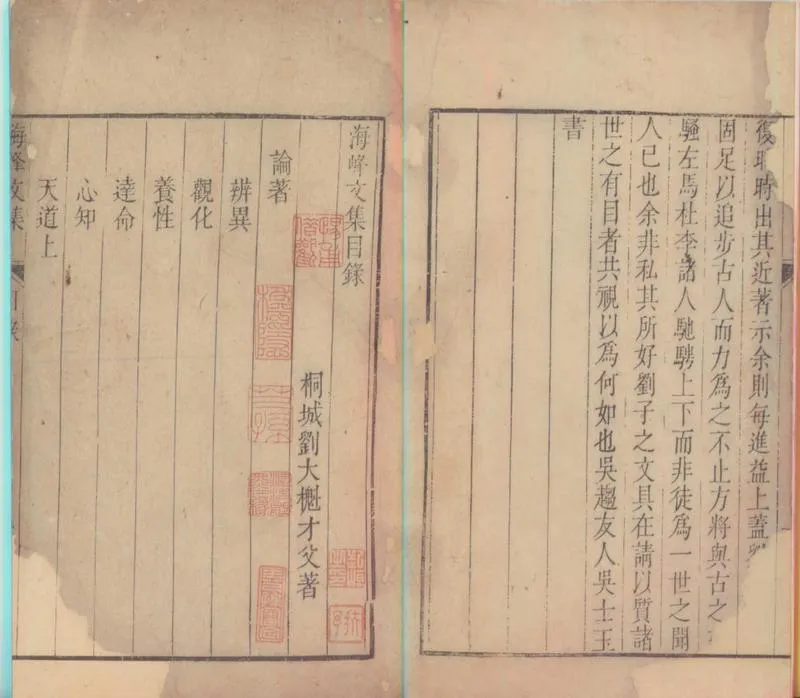 復耶時出其近著示余則每進益上蓋
固足以追步古人而力為之不止方將與古之
騷左馬杜李諸人馳騁上下而非徒為一世之聞
人已也余非私其所好劉子之文具在請以質諸
世之有目者共視以為何如也吳趨友人吳士玉
書
海峰文集目錄
桐城劉大櫆才父著
論著
辨異
觀化
養性
達命
心知
天道上
海峰文集
目錄